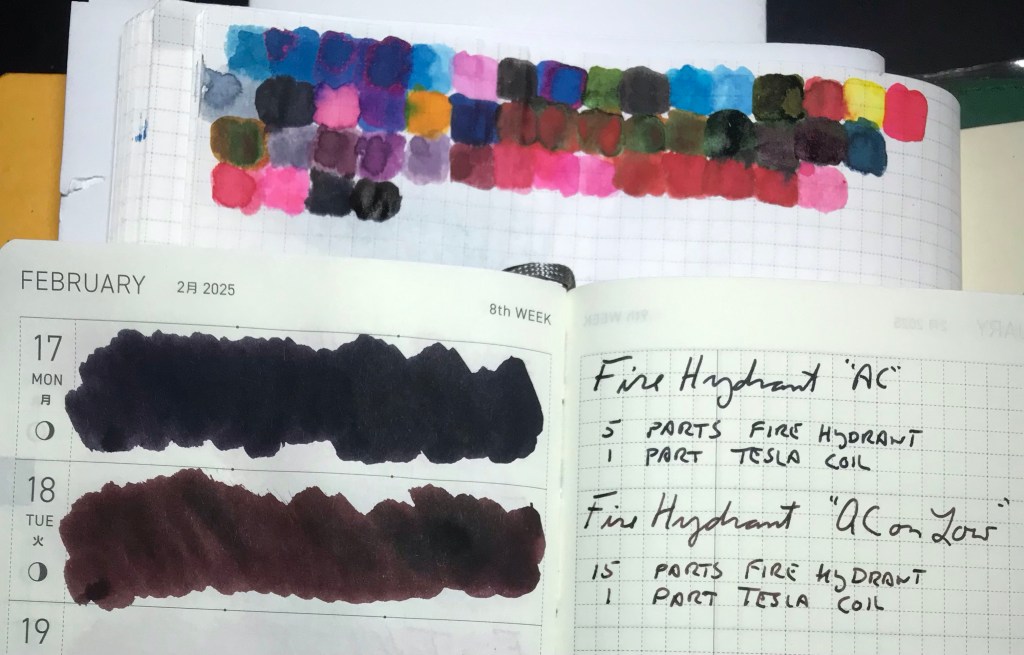 FEBRUARY 2月 2025
8th WEEK
17
MON
月
18
TUE
火
19
Fire Hydrant "AC"
5 PARTS FIRE HYDRANT
1 PART TESLA COIL
Fire Hydrant "AC on Low"
15 PARTS FIRE HYDRANT
1 PART TESLA COIL